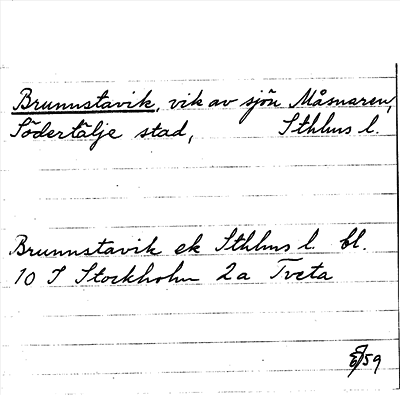 Brunnstavik, vik av sjön Måsnaren,
Södertälje stad, Sthlms l.
Brunnstavik ek Sthlms l. bl.
10 I Stockholm 2a Tveta
59